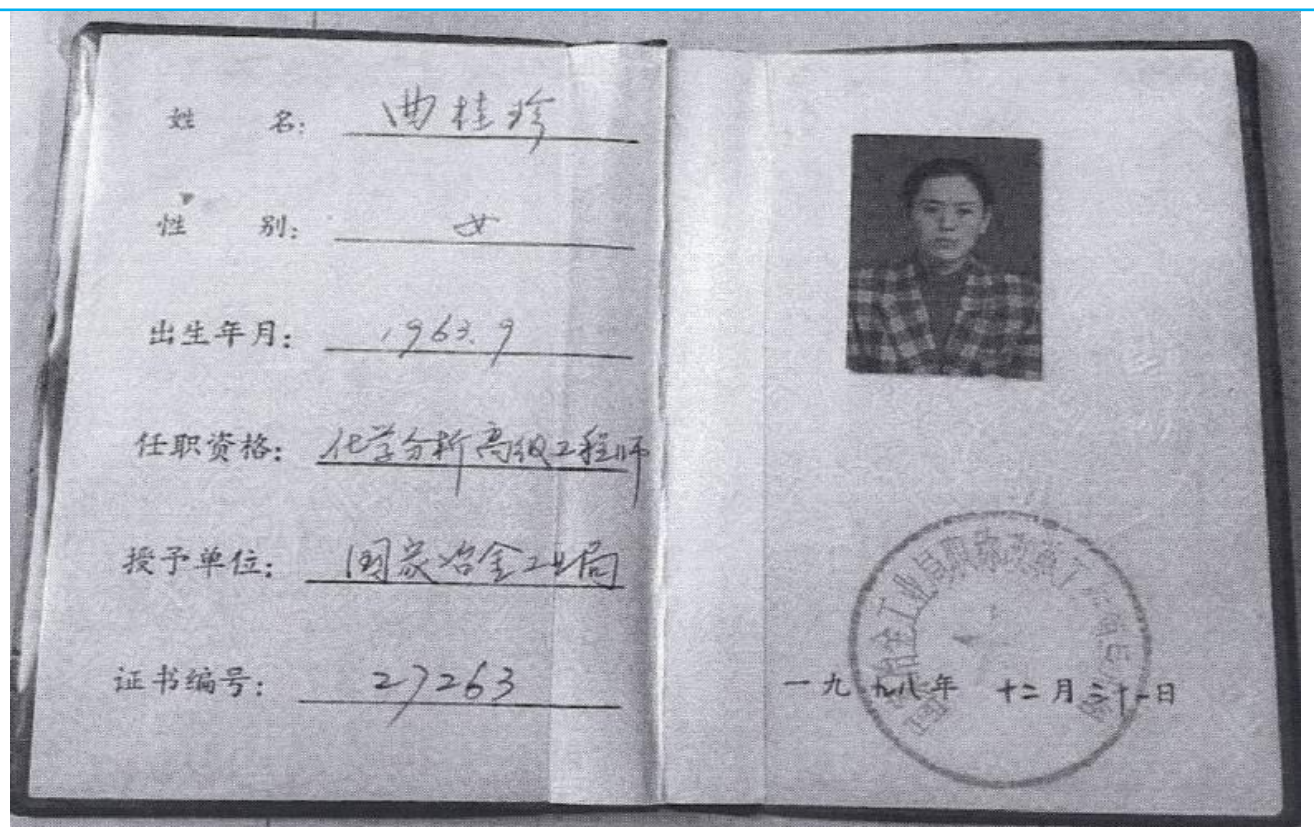 姓 名: 曲桂珍
性 别: 女
出生年月: 1963.9
任职资格: 化学分析高级工程师
授予单位: 国家冶金工业局
证书编号: 27263
冶金工业局职称改革工
一九九八年 十二月三十一日